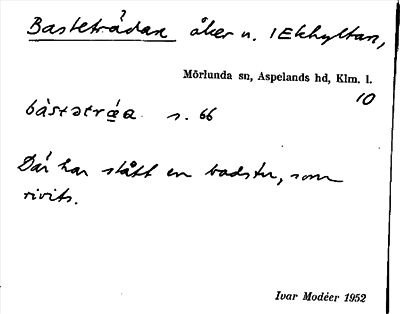 Bastetrådan åker n. 1 Ekhyltan,
Mörlunda sn, Aspelands hd, Klm. l.
10
s. 66
Där har stått en badstu, som
rivits.
Ivar Modéer 1952